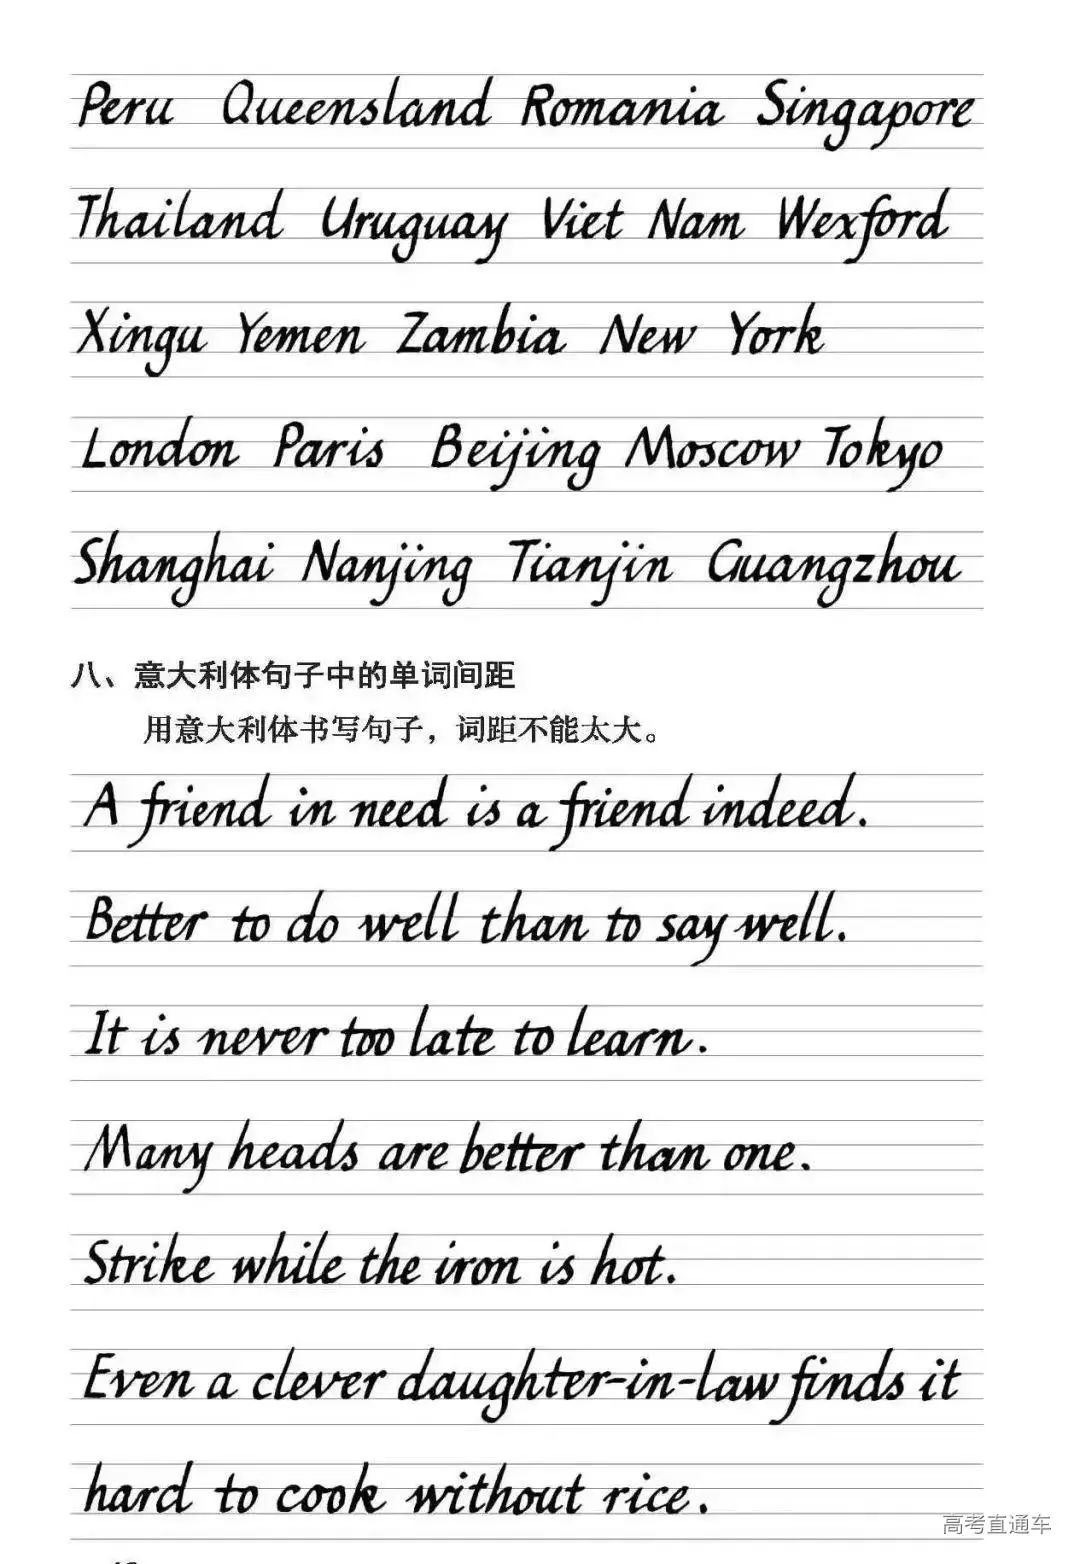 Peru Queensland Romania Singapore
Thailand Uruguay Viet Nam Wexford
Xingu Yemen Zambia New York
London Paris Beijing Moscow Tokyo
Shanghai Nanjing Tianjin Guangzhou
八、意大利体句子中的单词间距
用意大利体书写句子，词距不能太大。
A friend in need is a friend indeed.
Better to do well than to say well.
It is never too late to learn.
Many heads are better than one.
Strike while the iron is hot.
Even a clever daughter-in-law finds it
hard to cook without rice.
高考直通车